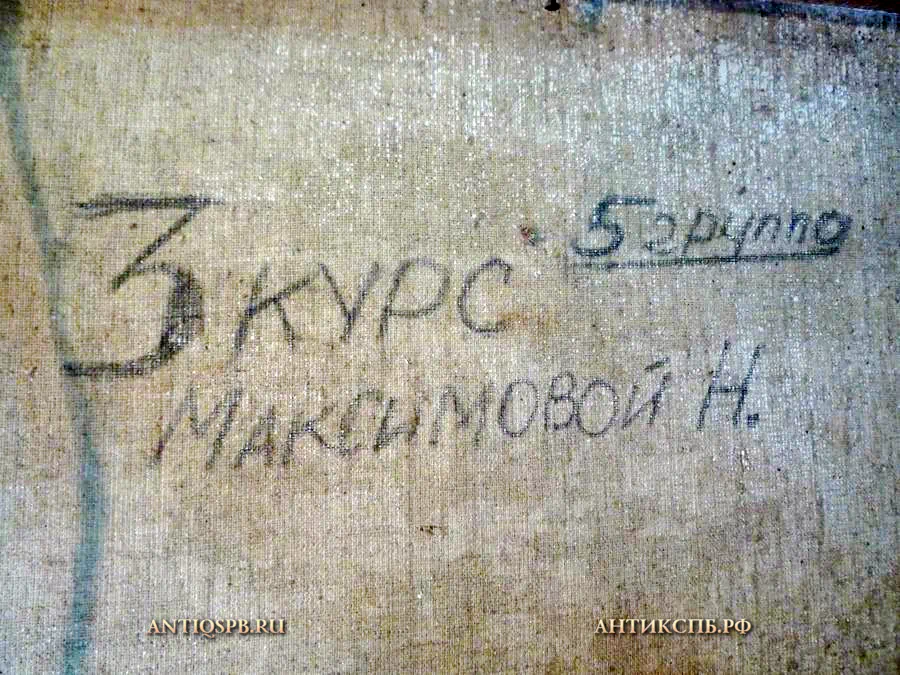 5 группа
3 курс
Максимовой Н.
ANTIQSPB.RU
АНТИКСПБ.РФ